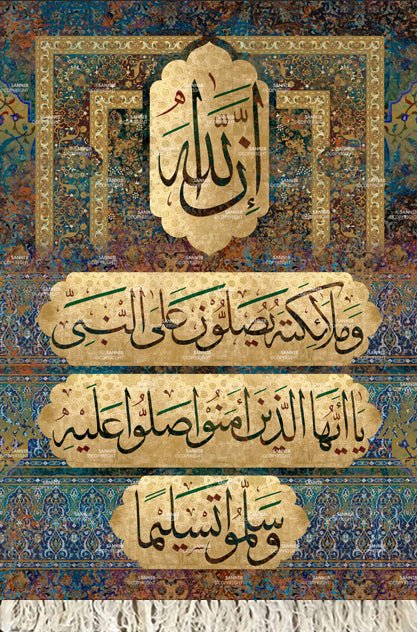 إن الله
وملائكته يصلون على النبي
يا أيها الذين آمنوا صلوا عليه
وسلموا تسليما